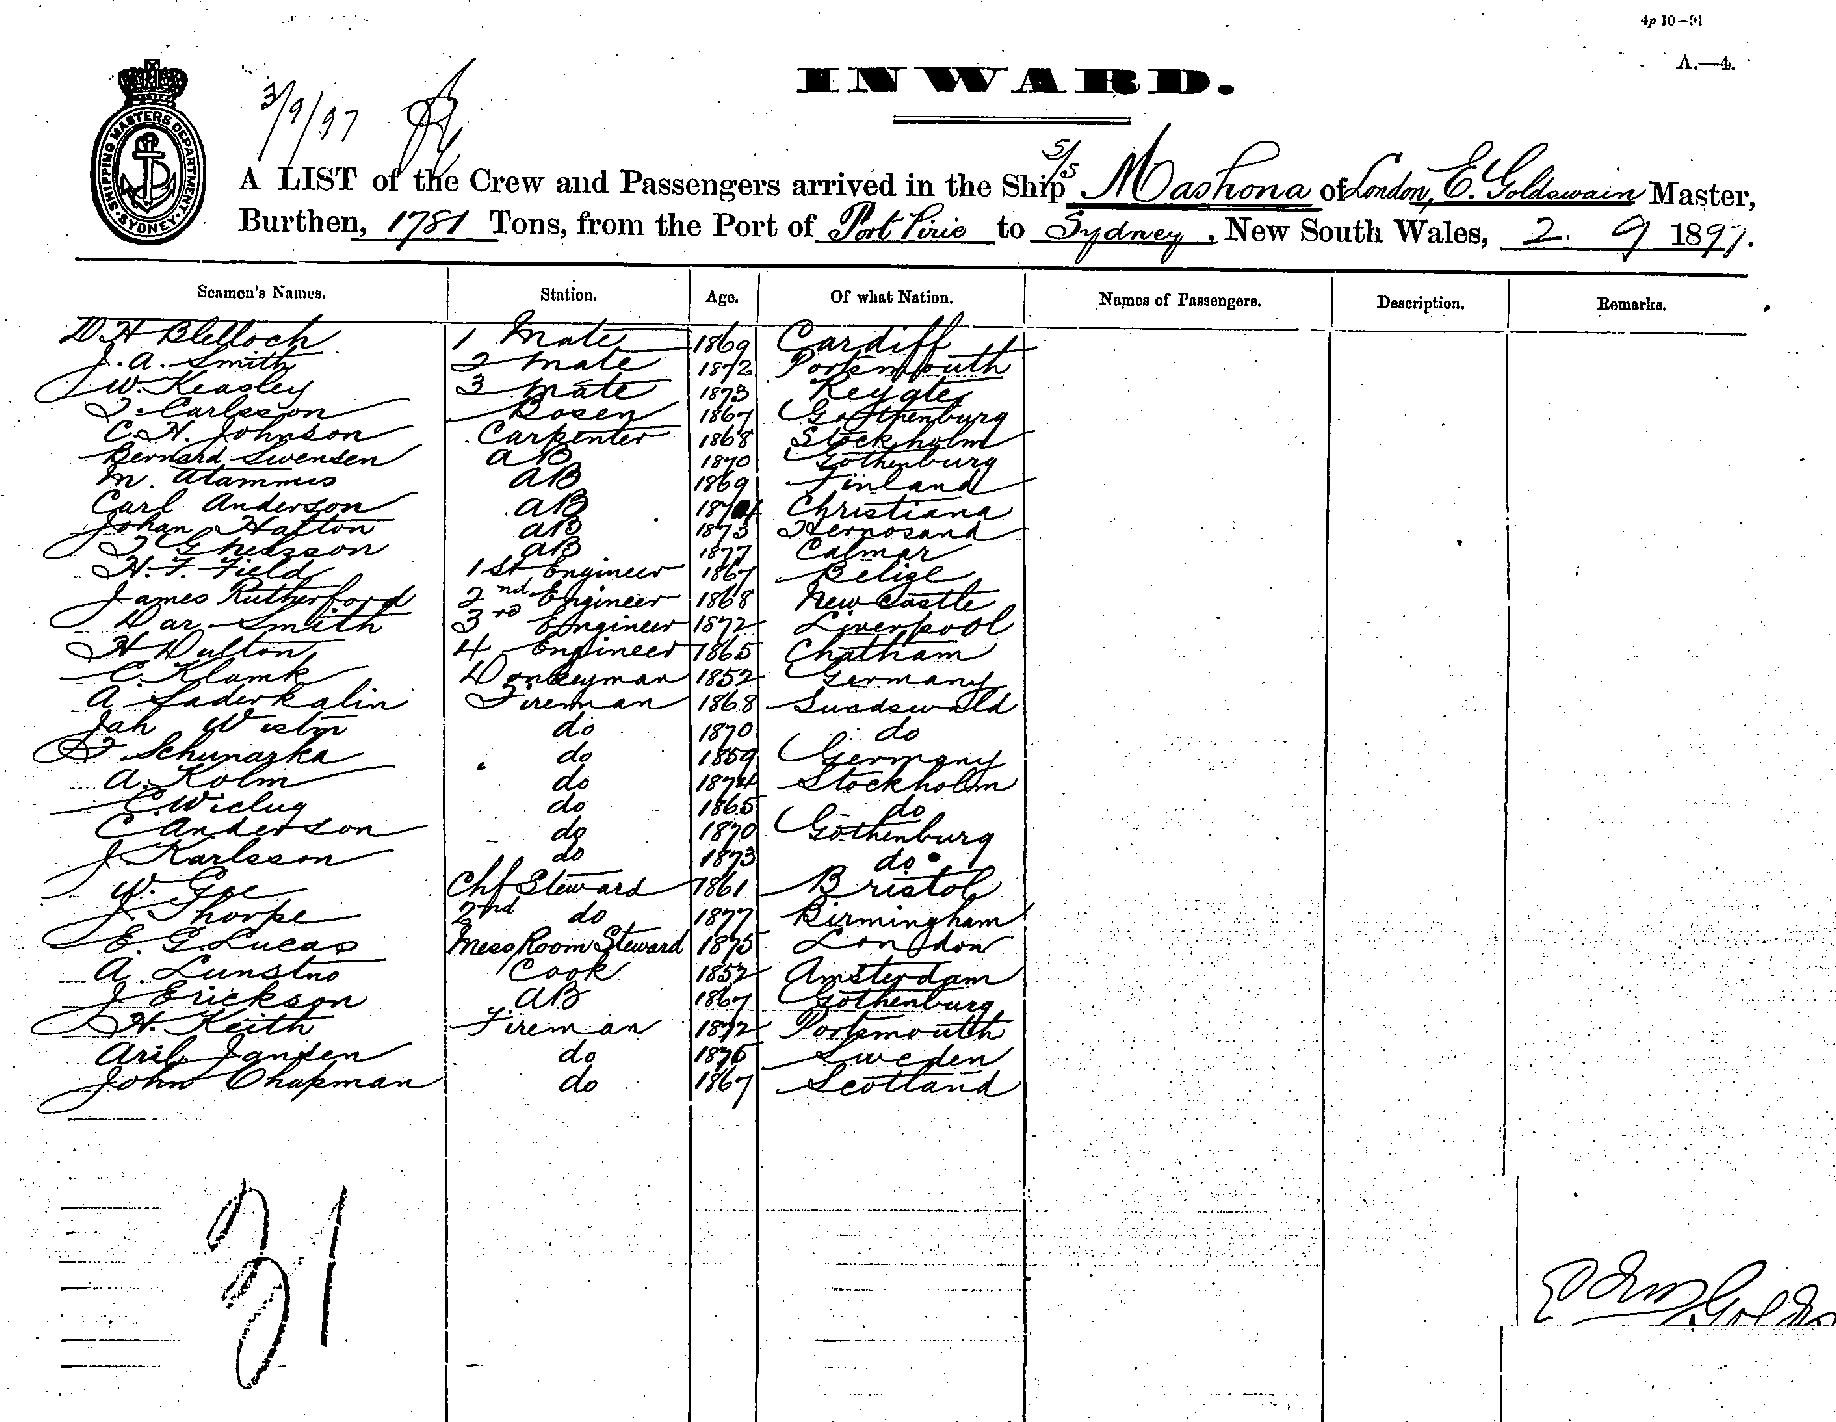 4p 10-91
A.—4.
INWARD.
3/9/97
SHIPPING MASTERS DEPARTMENT SYDNEY
A LIST of the Crew and Passengers arrived in the Ship S/S Mashona of London, E. Goldswain Master,
Burthen, 1781 Tons, from the Port of Port Pirie to Sydney, New South Wales, 2. 9 1897.
Seamen's Names. Station. Age. Of what Nation. Names of Passengers. Description. Remarks.
D. H Blelloch 1 Mate 1869 Cardiff
J. A. Smith 2 Mate 1872 Portsmouth
W. Keasley 3 Mate 1873 Reygte
Carlsson Bosen 1867 Gothenburg
C. H. Johnson Carpenter 1868 Stockholm
Bernard Swensen AB 1870 Gothenburg
M. Atammus AB 1869 Finland
Carl Anderson AB Christiana
Johan Hatton AB 1873 Hernosand
AB 1877 Calmar
H. F. Field 1st Engineer 1867 Belize
James Rutherford 2nd Engineer 1868 New Castle
Dar Smith 3rd Engineer 1872 Liverpool
H Dulton 4 Engineer 1865 Chatham
C. Klamk Donkeyman 1852 Germany
A Saderkalin Fireman 1868 Suadswald
Jah Westin do 1870 do
Schunarka do 1859 Germany
A. Kolm do 1874 Stockholm
C. Wiclug do 1865 do
C Anderson do 1870 Gothenburg
J Karlsson do 1873 do
W. Goe Chf Steward 1861 Bristol
J. Thorpe 2nd do 1877 Birmingham
E. G. Lucas Mess Room Steward 1875 London
A. Lunstno Cook 1852 Amsterdam
J Erickson AB 1867 Gothenburg
H. Keith Fireman 1872 Portsmouth
Aril Jansen do 1875 Sweden
John Chapman do 1867 Scotland
31